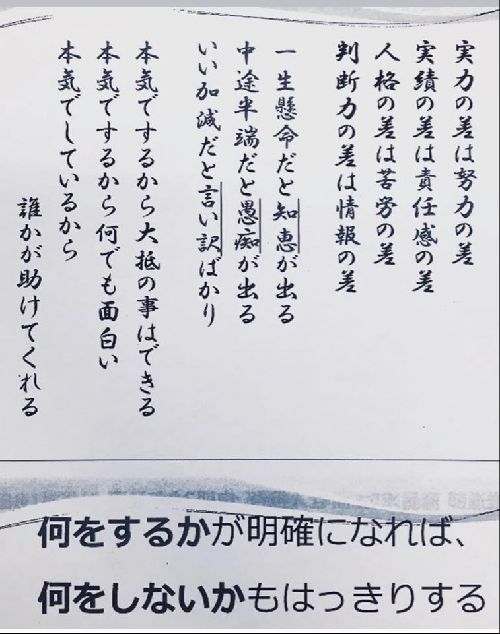 実力の差は努力の差
実績の差は責任感の差
人格の差は苦労の差
判断力の差は情報の差
一生懸命だと知恵が出る
中途半端だと愚痴が出る
いい加減だと言い訳ばかり
本気でするから大抵の事はできる
本気でするから何でも面白い
本気でしているから
誰かが助けてくれる
何をするかが明確になれば、
何をしないかもはっきりする